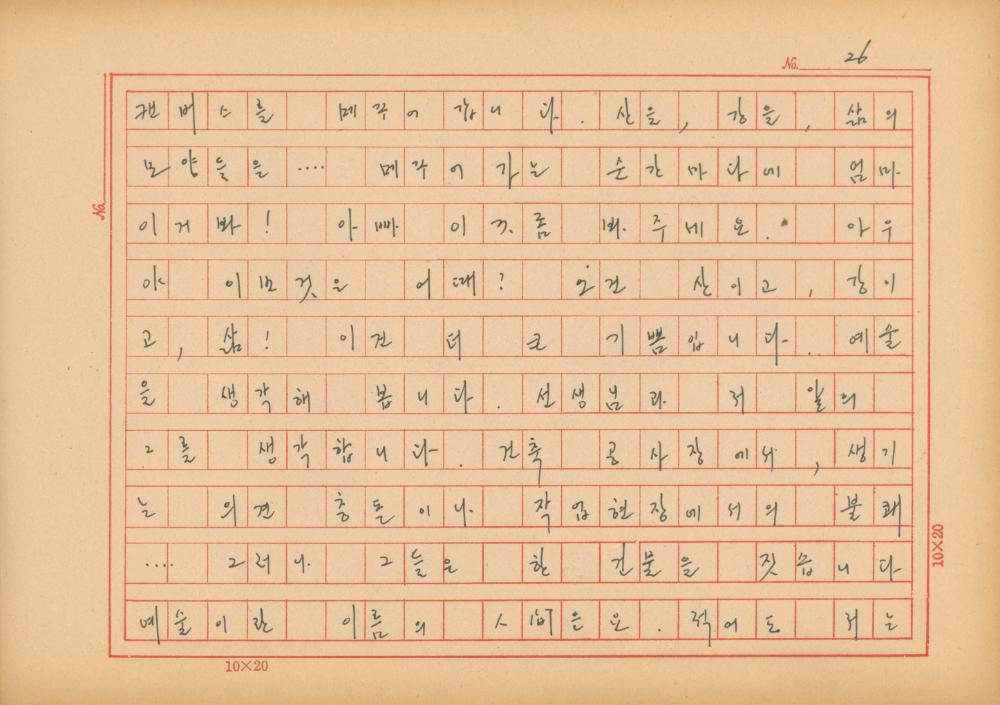 No. 26
캔버스를 메꾸어 갑니다. 산을, 강을, 삶의
모양들을 .... 메꾸어 가는 순간마다에 엄마
이거 봐! 아빠 이것 좀 봐 주세요. 아우
야 이번 것은 어때? 요건 산이고, 강이
고, 삶! 이건 더 큰 기쁨입니다.. 예술
을 생각해 봅니다. 선생님과 저 앞의
그를 생각합니다. 건축 공사장에서, 생기
는 의견 충돌이나 작업현장에서의 불쾌
.... 그러나 그들은 한 건물을 짓습니다
예술이란 이름의 人間은요. 적어도 저는
No.
10×20
10×20